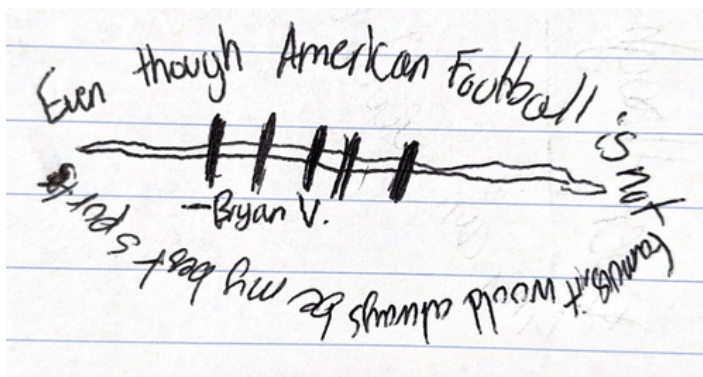 Even though American Football is not famous it woold always be my best sport
—Bryan V.